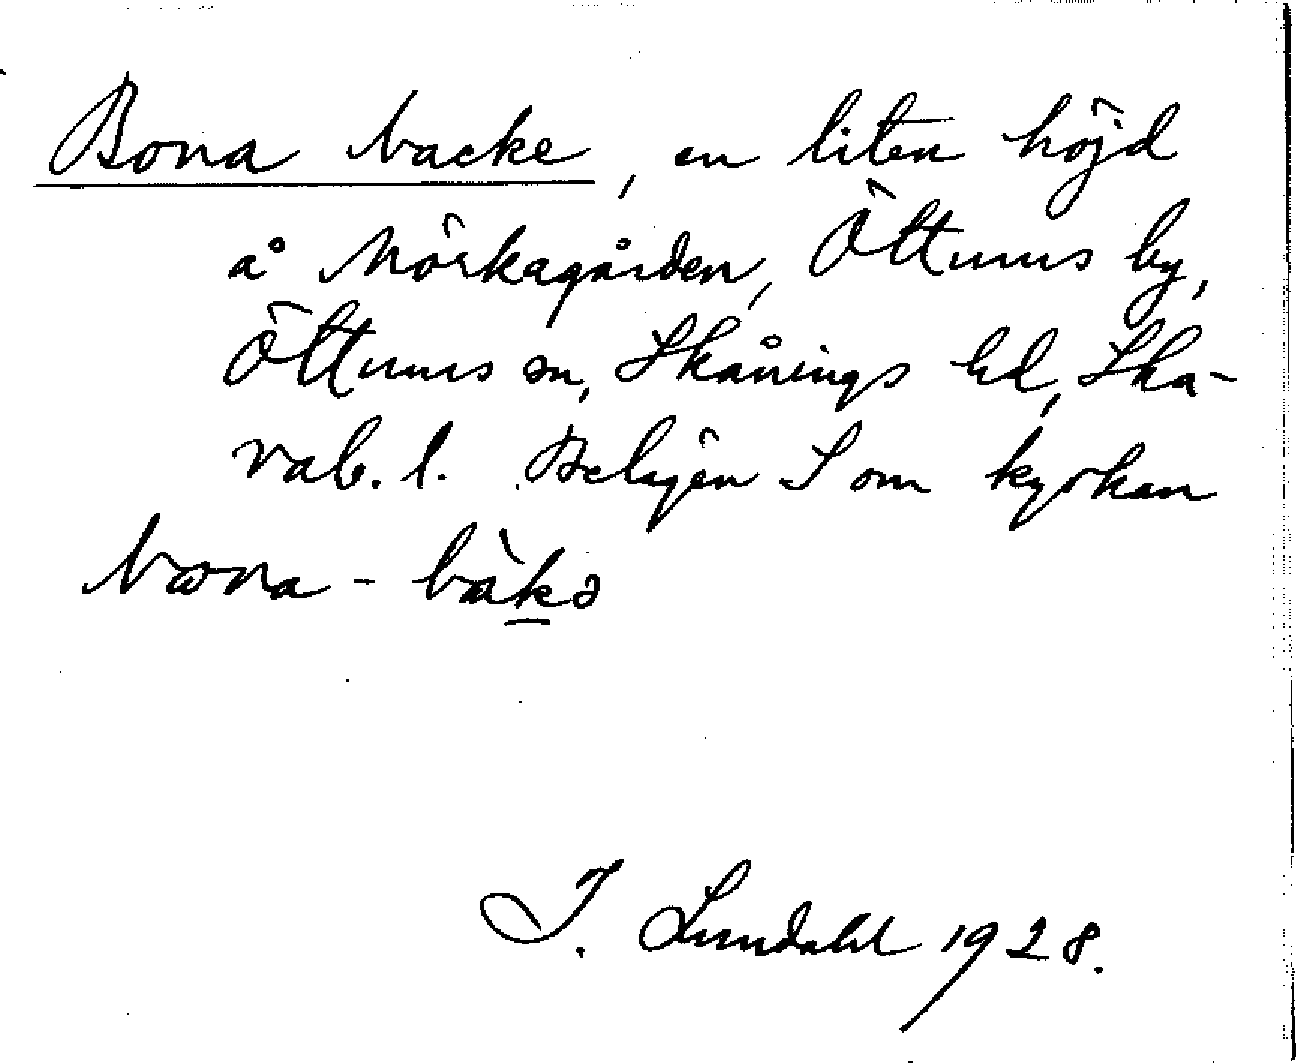 Bona backe, en liten höjd
å Mörkagården, Öttums by,
Öttums sn, Skånings hd, Ska-
rab. l. Belägen S om kyrkan
I. Lundahl 1928.